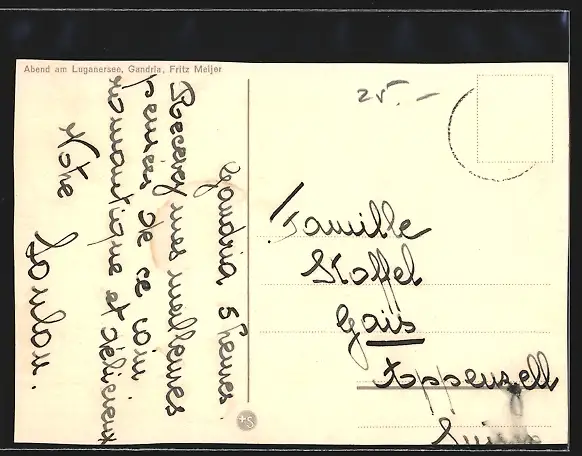 Abend am Luganersee, Gandria, Fritz Meijer
25.-
Gandria 5 heures.
Recevez mes meilleures
pensées de ce coin
romantique et délicieux
Votre
Loulou.
Famille
Koffel
Gais
Appenzell
Suisse
S+